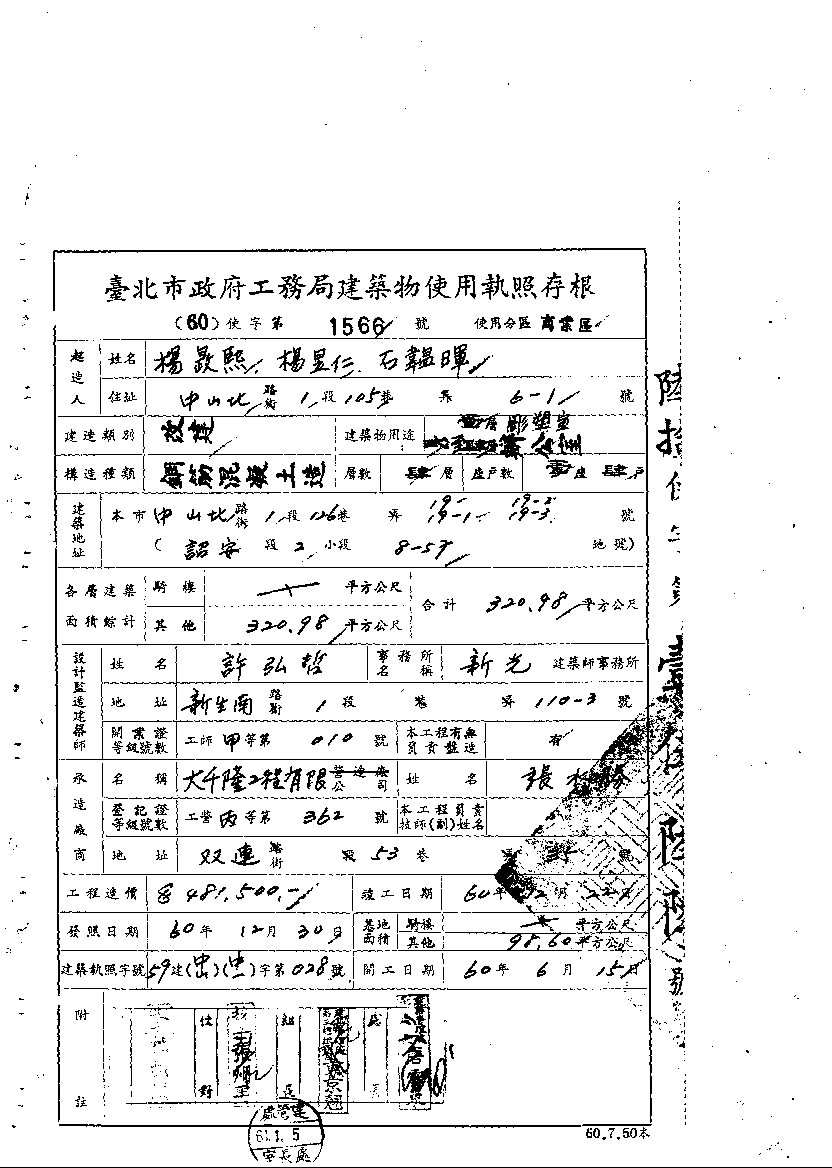 臺北市政府工務局建築物使用執照存根
(60)使字第 1566 號 使用分區 商業區
起造人 姓名 楊啟熙、楊昱仁、石韞暉
住址 中山北路街 1 段 105 巷 弄 6-1 號
建造類別 改建 建築物用途 彫塑室 公室
構造種類 鋼筋混凝土造 層數 肆層 座戶數 壹座 肆戶
建築地址 本市中山北路街 1 段 126 巷 弄 19- 19-1 19-2 19-3 號
(詔安 段 2 小段 8-57 地號)
各層建築面積綜計 騎樓 平方公尺 合計 320.98 平方公尺
其他 320.98 平方公尺
設計監造建築師 姓名 許弘哲 事務所名稱 新光 建築師事務所
地址 新生南路街 1 段 巷 弄 110-3 號
開業證等級號數 工師甲等第 010 號 本工程有無負責監造 有
承造廠商 名稱 大千隆工程有限營造廠公司 姓名 張
登記證等級號數 工營丙等第 362 號 本工程負責技師(副)姓名
地址 双連路街 段 53 巷 弄 號
工程造價 481,500.- 竣工日期 60年12月22日
發照日期 60年12月30日 基地面積 騎樓 平方公尺
其他 98.60 平方公尺
建築執照字號 59建(中山)(中一)字第028號 開工日期 60年6月15日
附註
建管處
61.1.5
室長處
60.7.50本
陸拾使字第壹伍陸陸號